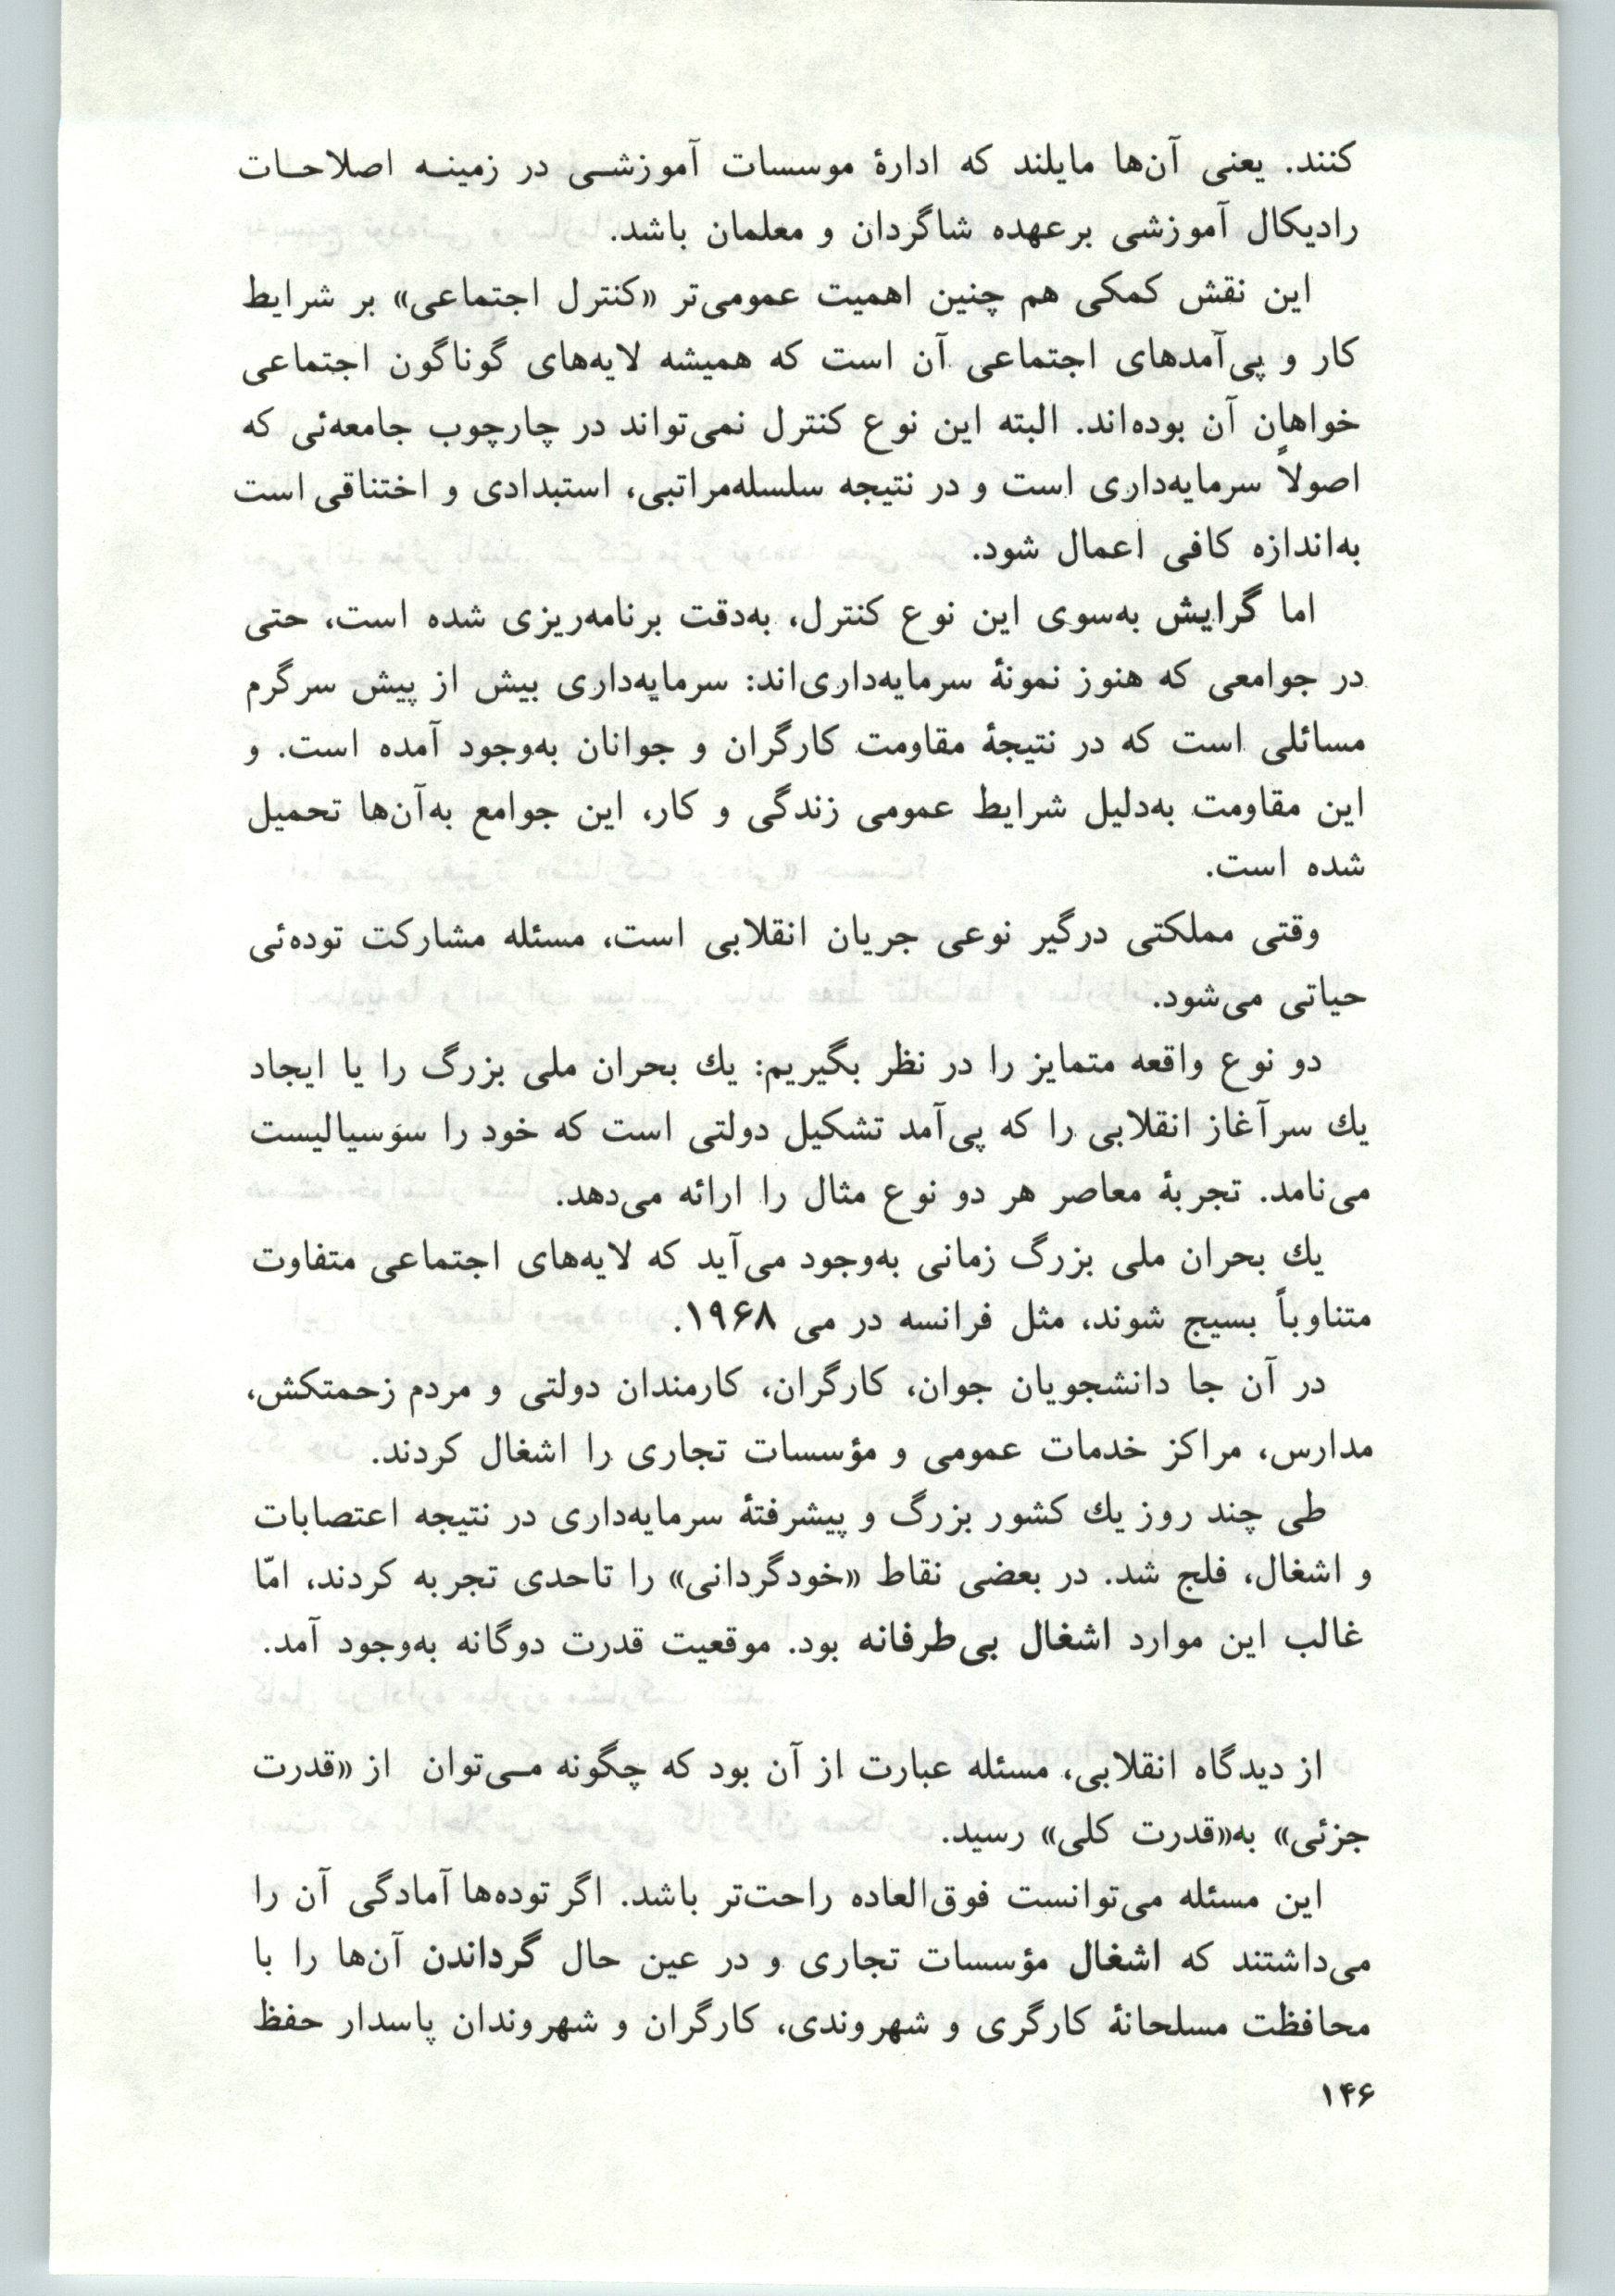 کنند. یعنی آن‌ها مایلند که ادارهٔ موسسات آموزشـی در زمینـه اصلاحـات
رادیکال آموزشی برعهده شاگردان و معلمان باشد.
این نقش کمکی هم چنین اهمیت عمومی‌تر «کنترل اجتماعی» بر شرایط
کار و پی‌آمدهای اجتماعی آن است که همیشه لایه‌های گوناگون اجتماعی
خواهان آن بوده‌اند. البته این نوع کنترل نمی‌تواند در چارچوب جامعه‌ئی که
اصولاً سرمایه‌داری است و در نتیجه سلسله‌مراتبی، استبدادی و اختناقی است
به‌اندازه کافی اعمال شود.
اما گرایش به‌سوی این نوع کنترل، به‌دقت برنامه‌ریزی شده است، حتی
در جوامعی که هنوز نمونهٔ سرمایه‌داری‌اند: سرمایه‌داری بیش از پیش سرگرم
مسائلی است که در نتیجهٔ مقاومت کارگران و جوانان به‌وجود آمده است. و
این مقاومت به‌دلیل شرایط عمومی زندگی و کار، این جوامع به‌آن‌ها تحمیل
شده است.
وقتی مملکتی درگیر نوعی جریان انقلابی است، مسئله مشارکت توده‌ئی
حیاتی می‌شود.
دو نوع واقعه متمایز را در نظر بگیریم: یك بحران ملی بزرگ را یا ایجاد
یك سرآغاز انقلابی را که پی‌آمد تشکیل دولتی است که خود را سوسیالیست
می‌نامد. تجربهٔ معاصر هر دو نوع مثال را ارائه می‌دهد.
یك بحران ملی بزرگ زمانی به‌وجود می‌آید که لایه‌های اجتماعی متفاوت
متناوباً بسیج شوند، مثل فرانسه در می ۱۹۶۸.
در آن جا دانشجویان جوان، کارگران، کارمندان دولتی و مردم زحمتکش،
مدارس، مراکز خدمات عمومی و مؤسسات تجاری را اشغال کردند.
طی چند روز یك کشور بزرگ و پیشرفتهٔ سرمایه‌داری در نتیجه اعتصابات
و اشغال، فلج شد. در بعضی نقاط «خودگردانی» را تاحدی تجربه کردند، امّا
غالب این موارد اشغال بی‌طرفانه بود. موقعیت قدرت دوگانه به‌وجود آمد.
از دیدگاه انقلابی، مسئله عبارت از آن بود که چگونه مـی‌توان از «قدرت
جزئی» به«قدرت کلی» رسید.
این مسئله می‌توانست فوق‌العاده راحت‌تر باشد. اگر توده‌ها آمادگی آن را
می‌داشتند که اشغال مؤسسات تجاری و در عین حال گرداندن آن‌ها را با
محافظت مسلحانهٔ کارگری و شهروندی، کارگران و شهروندان پاسدار حفظ
۱۴۶